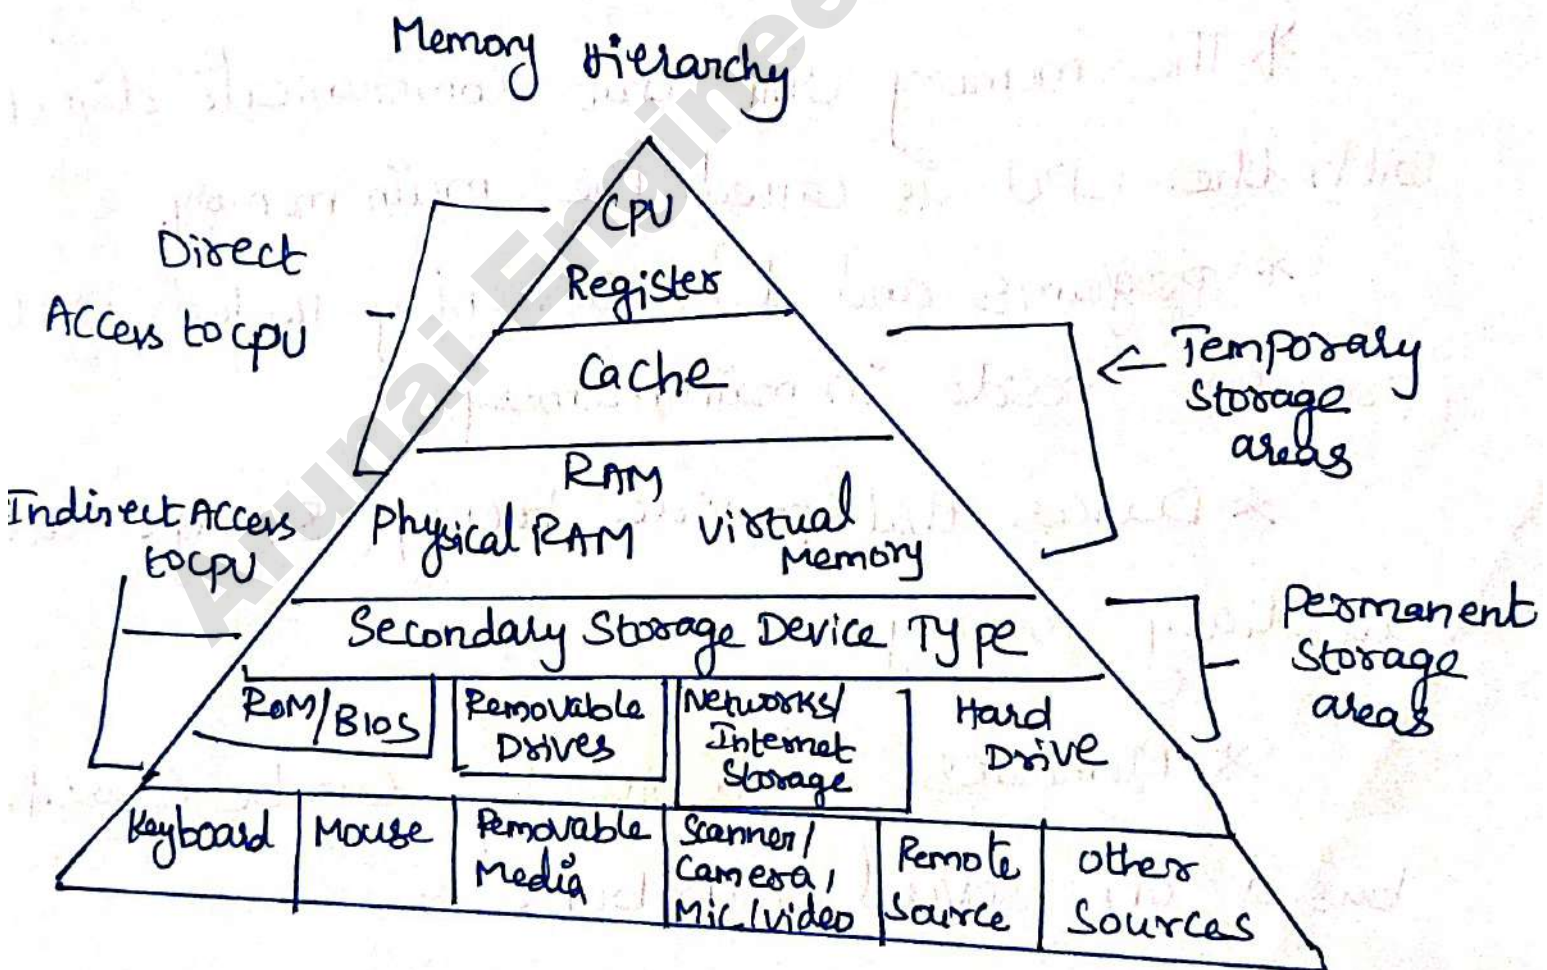 Memory Hierarchy
CPU
Register
Direct
Access to cpu
Cache
Temporary
Storage
areas
RAM
Physical RAM Virtual
Memory
Indirect Access
to cpu
Secondary Storage Device Type
Permanent
Storage
areas
ROM/BIOS
Removable
Drives
Networks/
Internet
Storage
Hard
Drive
Keyboard
Mouse
Removable
Media
Scanner/
Camera,
Mic/video
Remote
Source
Other
Sources
Arunai Enginee